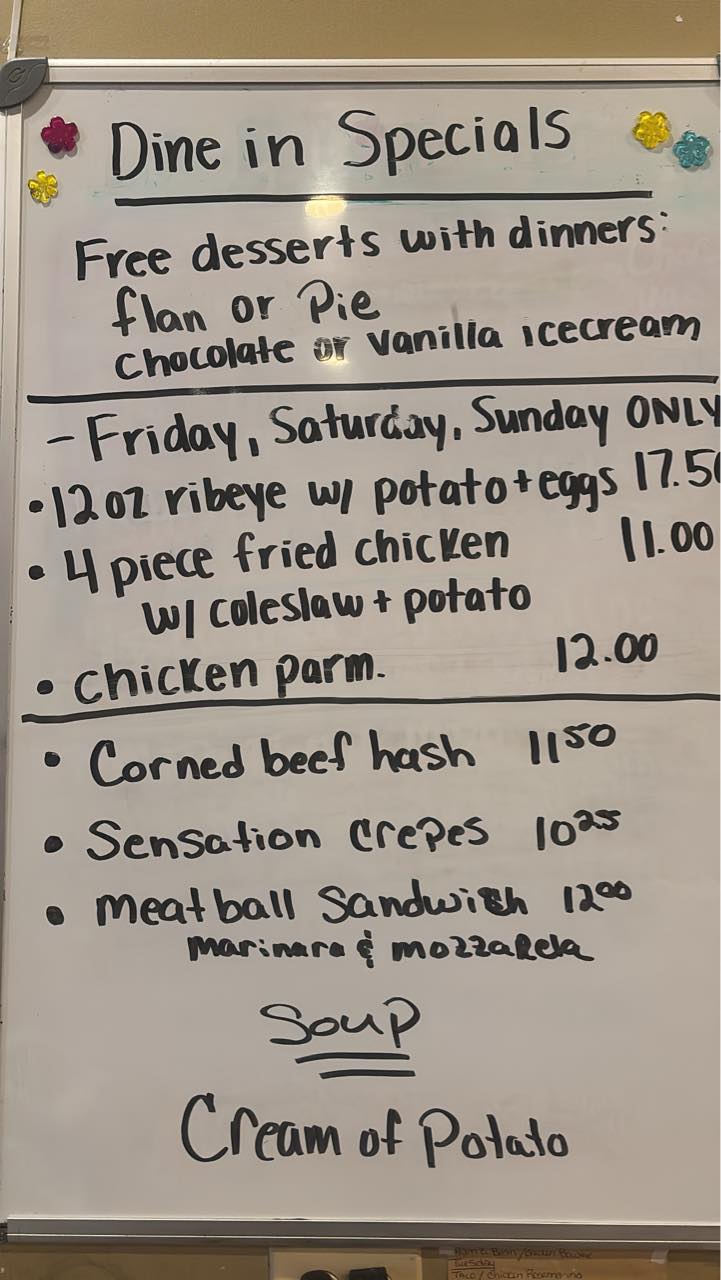 Dine in Specials
Free desserts with dinners:
flan or Pie
chocolate or vanilla icecream
- Friday, Saturday, Sunday ONLY
• 12oz ribeye w/ potato + eggs 17.50
• 4 piece fried chicken 11.00
w/ coleslaw + potato
• chicken parm. 12.00
• Corned beef hash 11 50
• Sensation crepes 10 25
• Meatball Sandwich 12 00
marinara & mozzarella
Soup
Cream of Potato
Tuesday